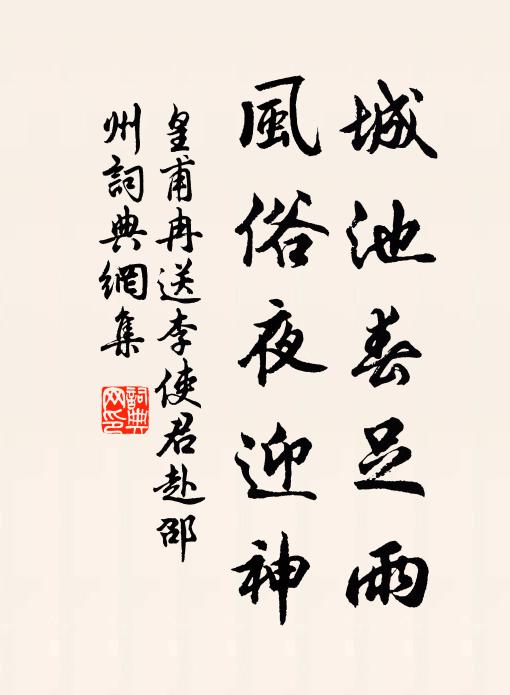 城池春足雨
風俗夜迎神
皇甫冉送李使君赴邵
州詞典網集
詞典
网印